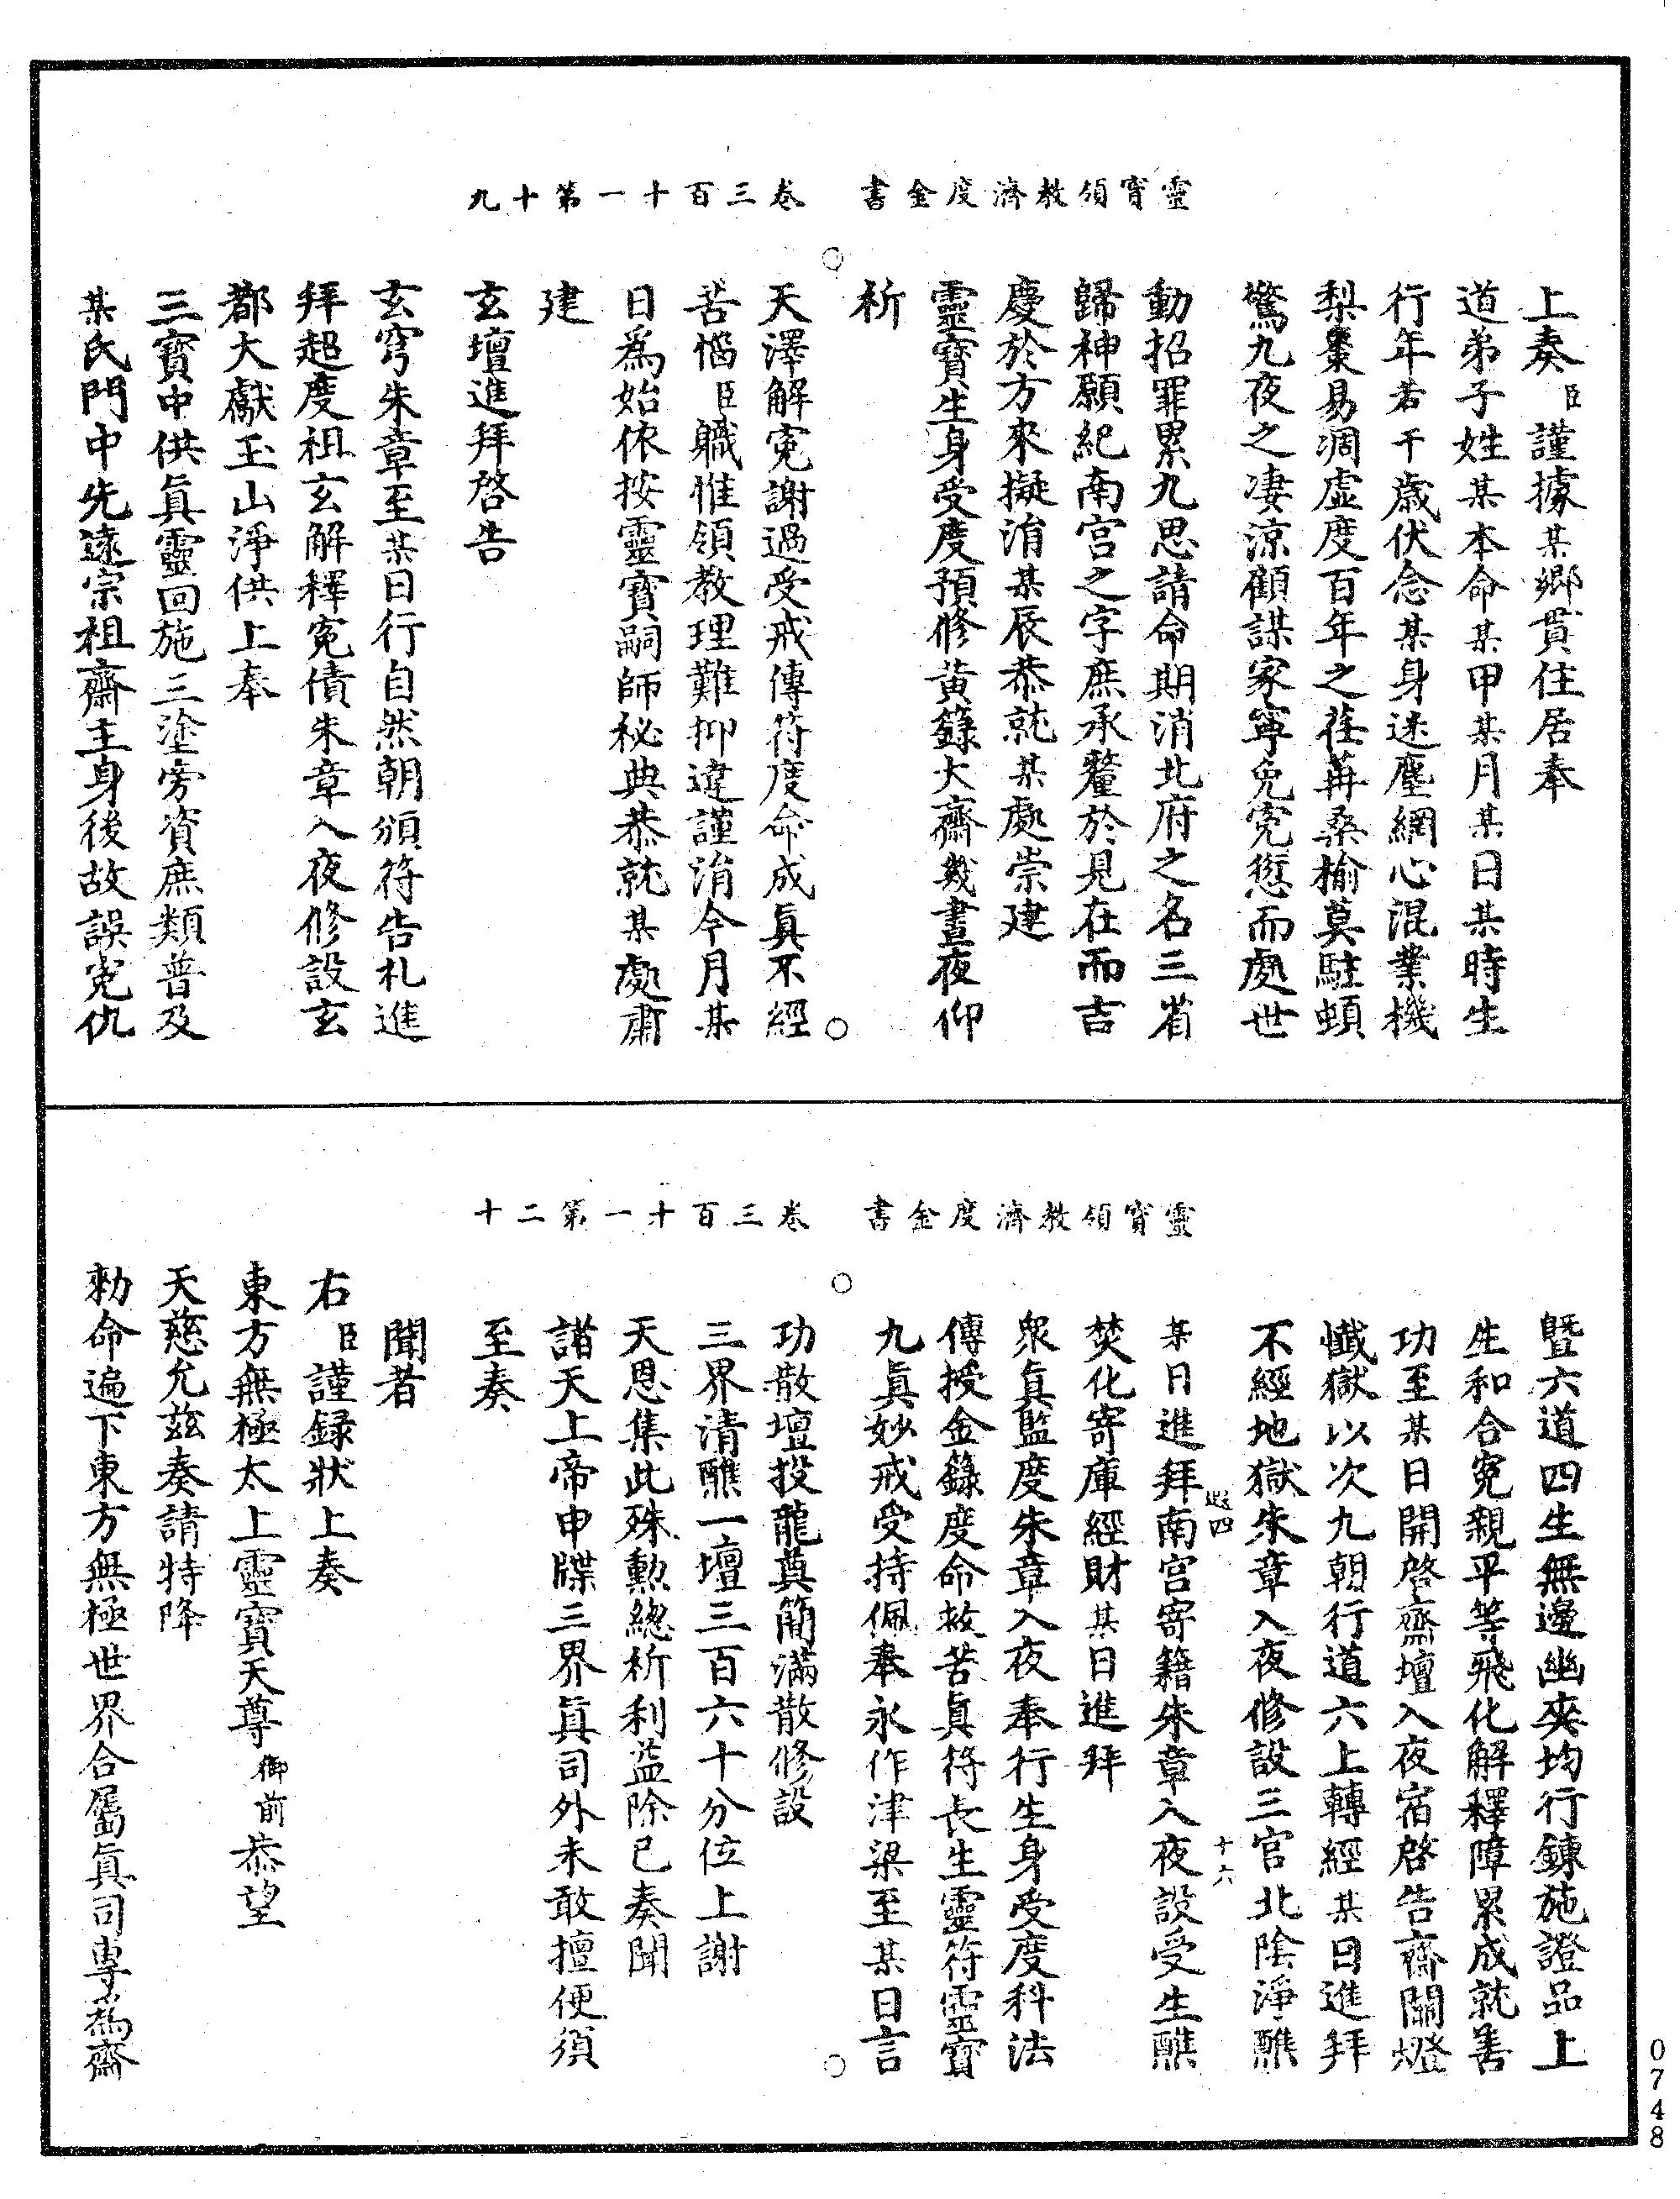 靈寶領教濟度金書　卷三百一十第十九
上奏臣謹據某鄉貫住居奉
道弟子姓某本命某甲某月某日某時生
行年若干歲伏念某身迷塵網心混業機
梨棗易凋虛度百年之荏苒桑榆莫駐頓
驚九夜之凄涼顧謀家寧免寃愆而處世
動招罪累九思請命期消北府之名三省
歸神願紀南宫之字庶承釐於見在而吉
慶於方來擬涓某辰恭就某處崇建
靈寶生身受度預修黄籙大齋幾晝夜仰
祈
天澤解寃謝過受戒傳符度命成眞不經
苦惱臣職惟領教理難抑違謹涓今月某
日爲始依按靈寶嗣師秘典恭就某處肅
建
玄壇進拜啓告
玄穹朱章至某日行自然朝頒符告札進
拜超度祖玄解釋寃債朱章入夜修設玄
都大獻玉山淨供上奉
三寶中供眞靈回施三塗旁資庶類普及
某氏門中先遠宗祖齋主身後故誤寃仇
靈寶領教濟度金書　卷三百一十第二十
曁六道四生無邊幽爽均行鍊施證品上
生和合寃親平等飛化解釋障累成就善
功至某日開啓齋壇入夜宿啓告齋關燈
懺獄以次九朝行道六上轉經某日進拜
不經地獄朱章入夜修設三官北陰淨醮
某日進拜南宫寄籍朱章入夜設受生醮
四
十六
焚化寄庫經財某日進拜
衆眞監度朱章入夜奉行生身受度科法
傳授金籙度命救苦眞符長生靈符靈寶
九眞妙戒受持佩奉永作津梁至某日言
功散壇投龍奠簡滿散修設
三界清醮一壇三百六十分位上謝
天恩集此殊勲總祈利益除已奏聞
諸天上帝申牒三界眞司外未敢擅便須
至奏
聞者
右臣謹録狀上奏
東方無極太上靈寶天尊御前恭望
天慈允茲奏請特降
勑命遍下東方無極世界合屬眞司專爲齋
0748